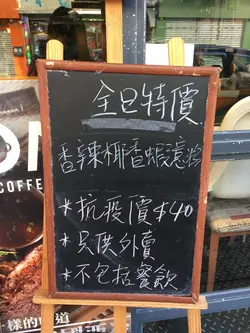 全日特價
香辣椰香蝦意粉
*抗疫價$40
*只供外賣
*不包括餐飲
COFFEE
樣的 道